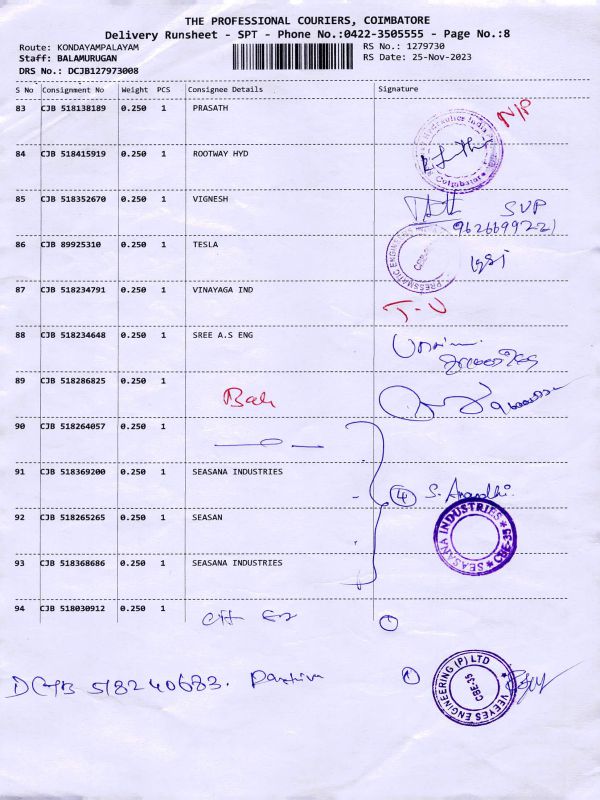 THE PROFESSIONAL COURIERS, COIMBATORE
Delivery Runsheet - SPT - Phone No.:0422-3505555 - Page No.:8
Route: KONDAYAMPALAYAM RS No.: 1279730
Staff: BALAMURUGAN RS Date: 25-Nov-2023
DRS No.: DCJB127973008
S No Consignment No Weight PCS Consignee Details Signature
83 CJB 518138189 0.250 1 PRASATH N/P
84 CJB 518415919 0.250 1 ROOTWAY HYD
Coimbatore
85 CJB 518352670 0.250 1 VIGNESH SVP
9626699221
86 CJB 89925310 0.250 1 TESLA
PRESSMATIC ENGINEERS
87 CJB 518234791 0.250 1 VINAYAGA IND
88 CJB 518234648 0.250 1 SREE A.S ENG
89 CJB 518286825 0.250 1
90 CJB 518264057 0.250 1
91 CJB 518369200 0.250 1 SEASANA INDUSTRIES 4
92 CJB 518265265 0.250 1 SEASAN
SEASANA INDUSTRIES CBE-35
93 CJB 518368686 0.250 1 SEASANA INDUSTRIES
94 CJB 518030912 0.250 1 1
DCJB 518240683. 1
VEEYES ENGINEERING (P) LTD CBE-35